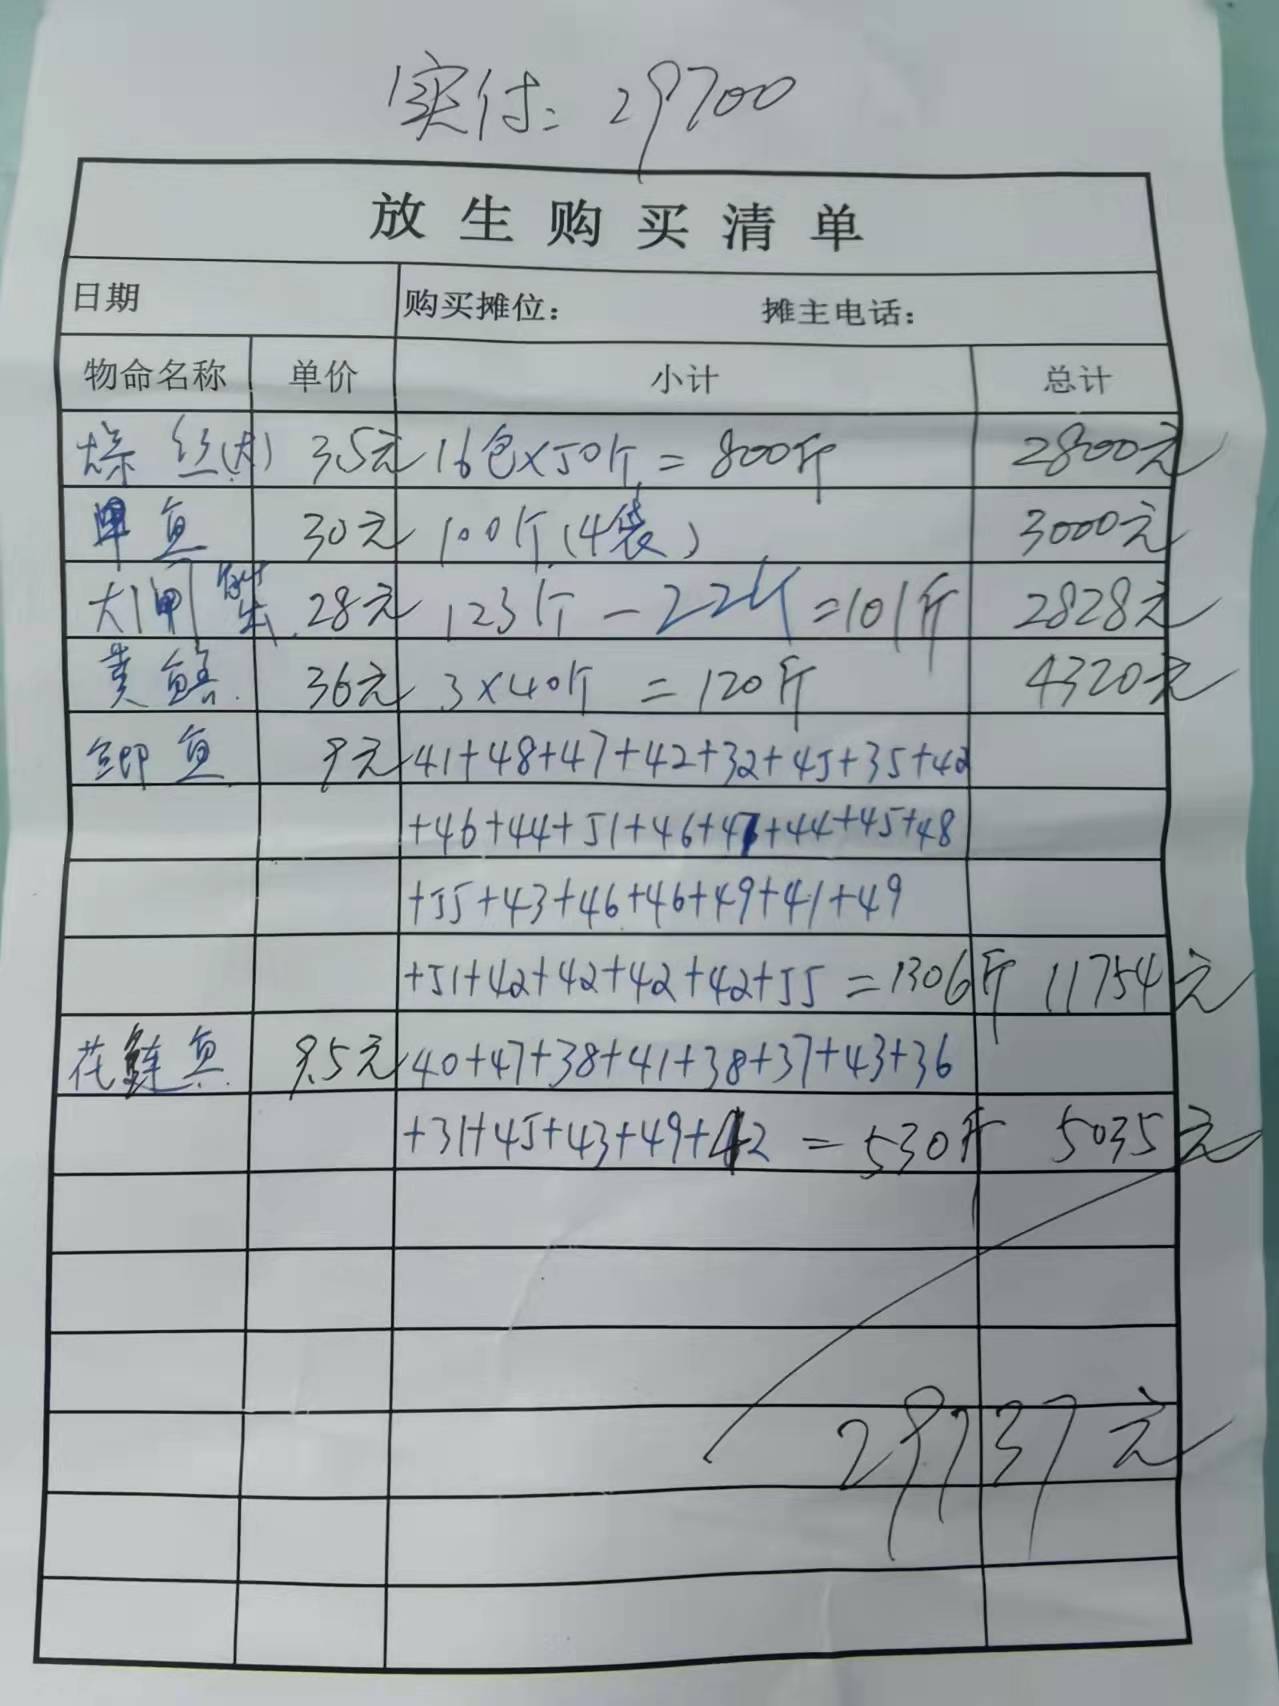 实付: 29700
放生购买清单
日期 购买摊位: 摊主电话:
物命名称 单价 小计 总计
螺丝(大) 3.5元 16包×50斤=800斤 2800元
甲鱼 30元 100斤(4袋) 3000元
大闸蟹 28元 123斤-22斤=101斤 2828元
黄鳝 36元 3×40斤=120斤 4320元
鲫鱼 9元 41+48+47+42+32+45+35+42
+46+44+51+46+47+44+45+48
+55+43+46+46+49+41+49
+51+42+42+42+42+55=1306斤 11754元
花鲢鱼 9.5元 40+47+38+41+38+37+43+36
+31+45+43+49+42=530斤 5035元
29737元